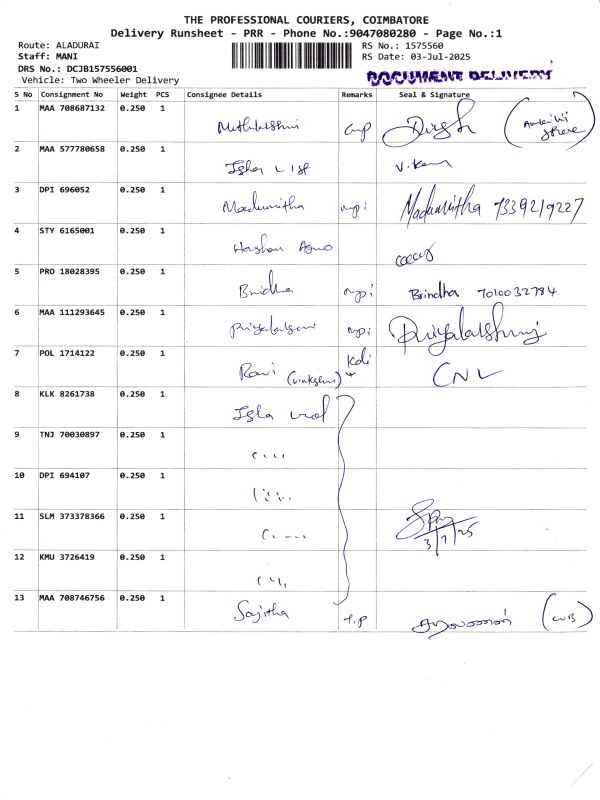 THE PROFESSIONAL COURIERS, COIMBATORE
Delivery Runsheet - PRR - Phone No.:9047080280 - Page No.:1
Route: ALADURAI
Staff: MANI
DRS No.: DCJB157556001
Vehicle: Two Wheeler Delivery
RS No.: 1575560
RS Date: 03-Jul-2025
DOCUMENT DELIVERY
S No Consignment No Weight PCS Consignee Details Remarks Seal & Signature
1 MAA 708687132 0.250 1
2 MAA 577780658 0.250 1 V.
3 DPI 696052 0.250 1 Madumitha Madumitha 7339219227
4 STY 6165001 0.250 1
5 PRO 18028395 0.250 1 Brindha Brindha 7010032784
6 MAA 111293645 0.250 1 Priyalakshmi
7 POL 1714122 0.250 1 Ravi
8 KLK 8261738 0.250 1
9 TNJ 70030897 0.250 1
10 DPI 694107 0.250 1
11 SLM 373378366 0.250 1 3/7/25
12 KMU 3726419 0.250 1
13 MAA 708746756 0.250 1 Sajitha